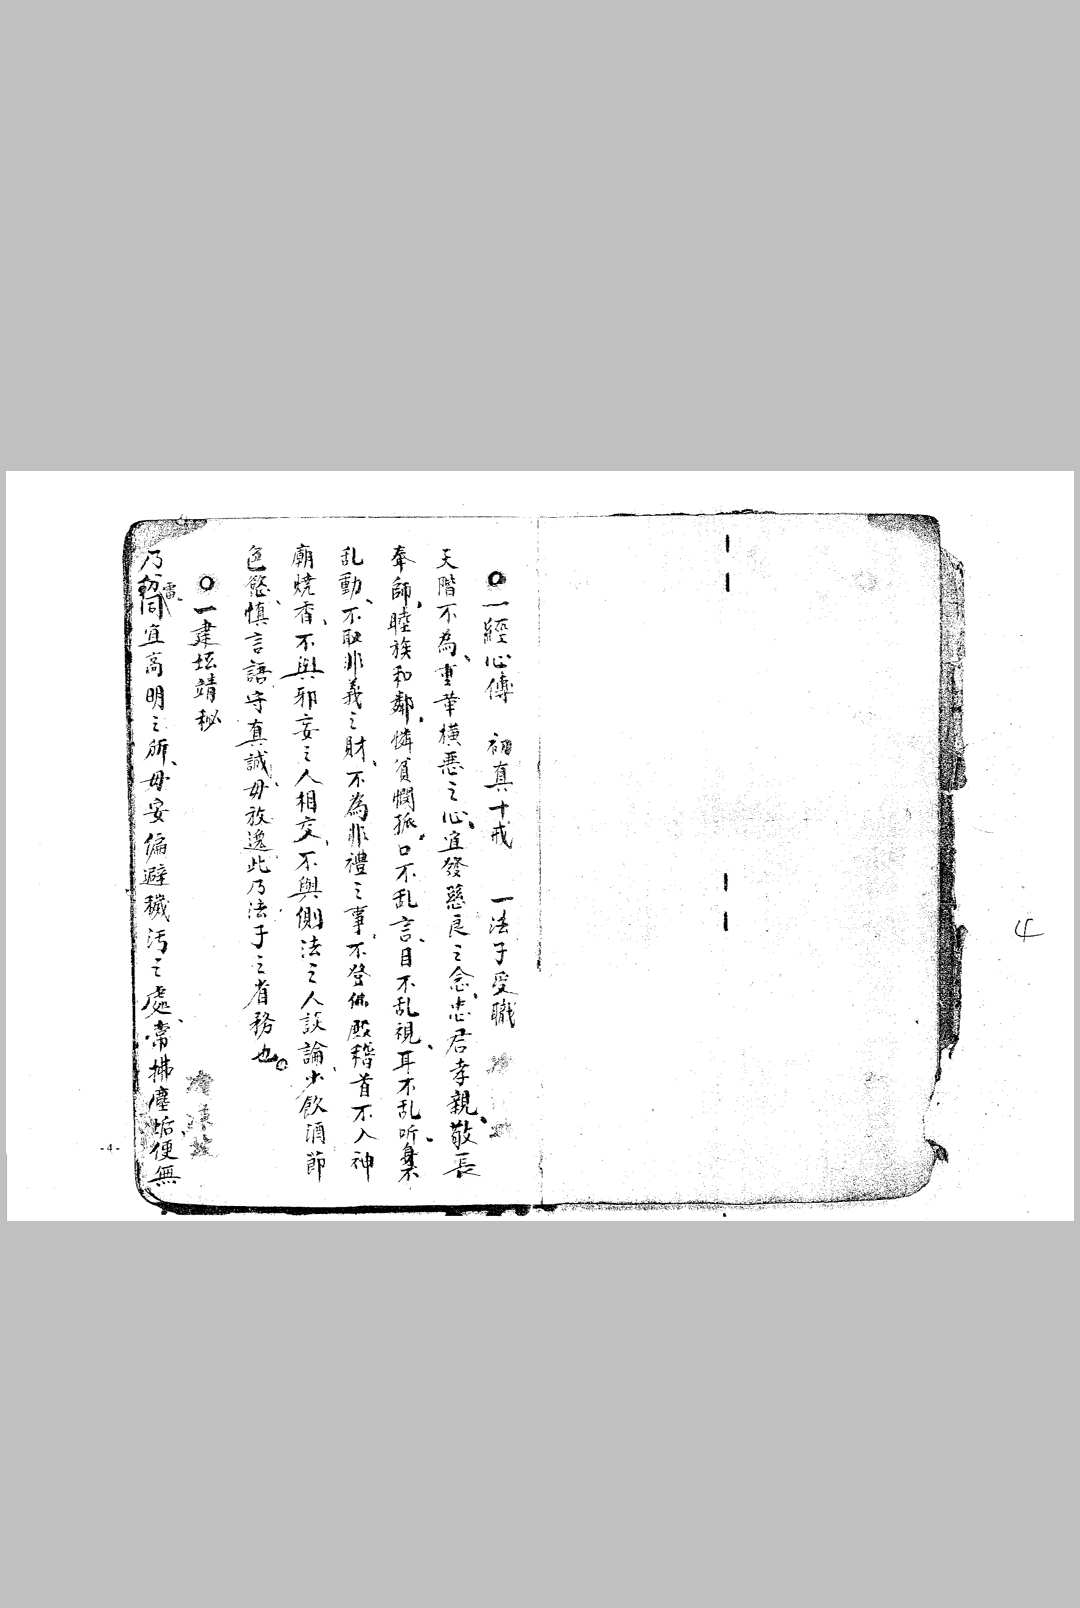 一經心傳 初真十戒 一法子受職
天階不為、重華橫惡之心、宜發慈良之念、忠君孝親、敬長
奉師、睦族和鄰、憐貧憫孤、口不乱言、目不乱視、耳不乱听、
乱動、不取非義之財、不為非禮之事、不登佛殿稽首不入神
廟燒香、不與邪妄之人相交、不與側法之人談論、少飲酒節
色慾、慎言語守真誠毋放逸此乃法子之省務也。
一建坛靖秘
乃 宜高明之所、毋妄偏避穢污之處、常拂塵垢、便無
-4-
4